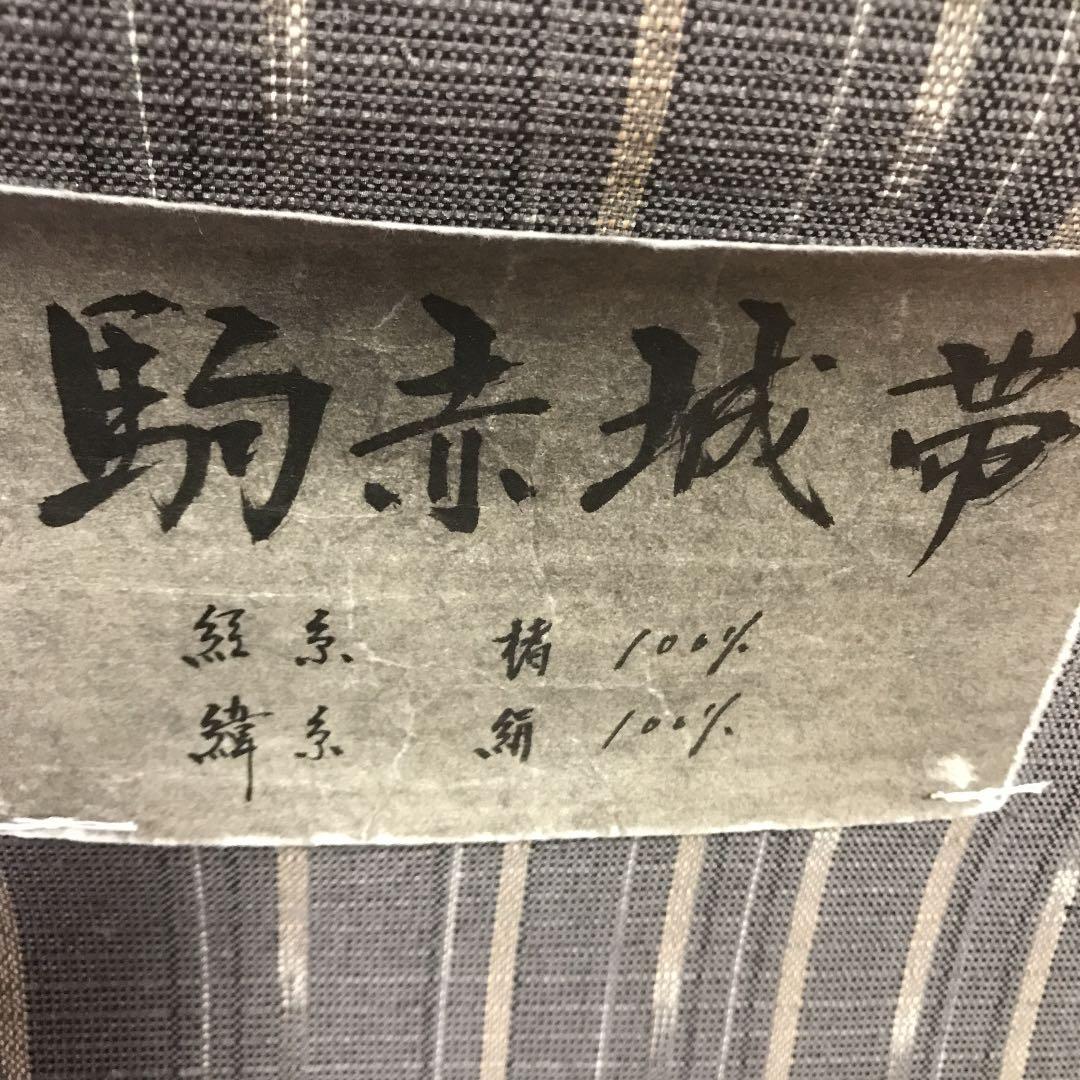 駒赤城帯
経糸 楮 100%
緯糸 絹 100%